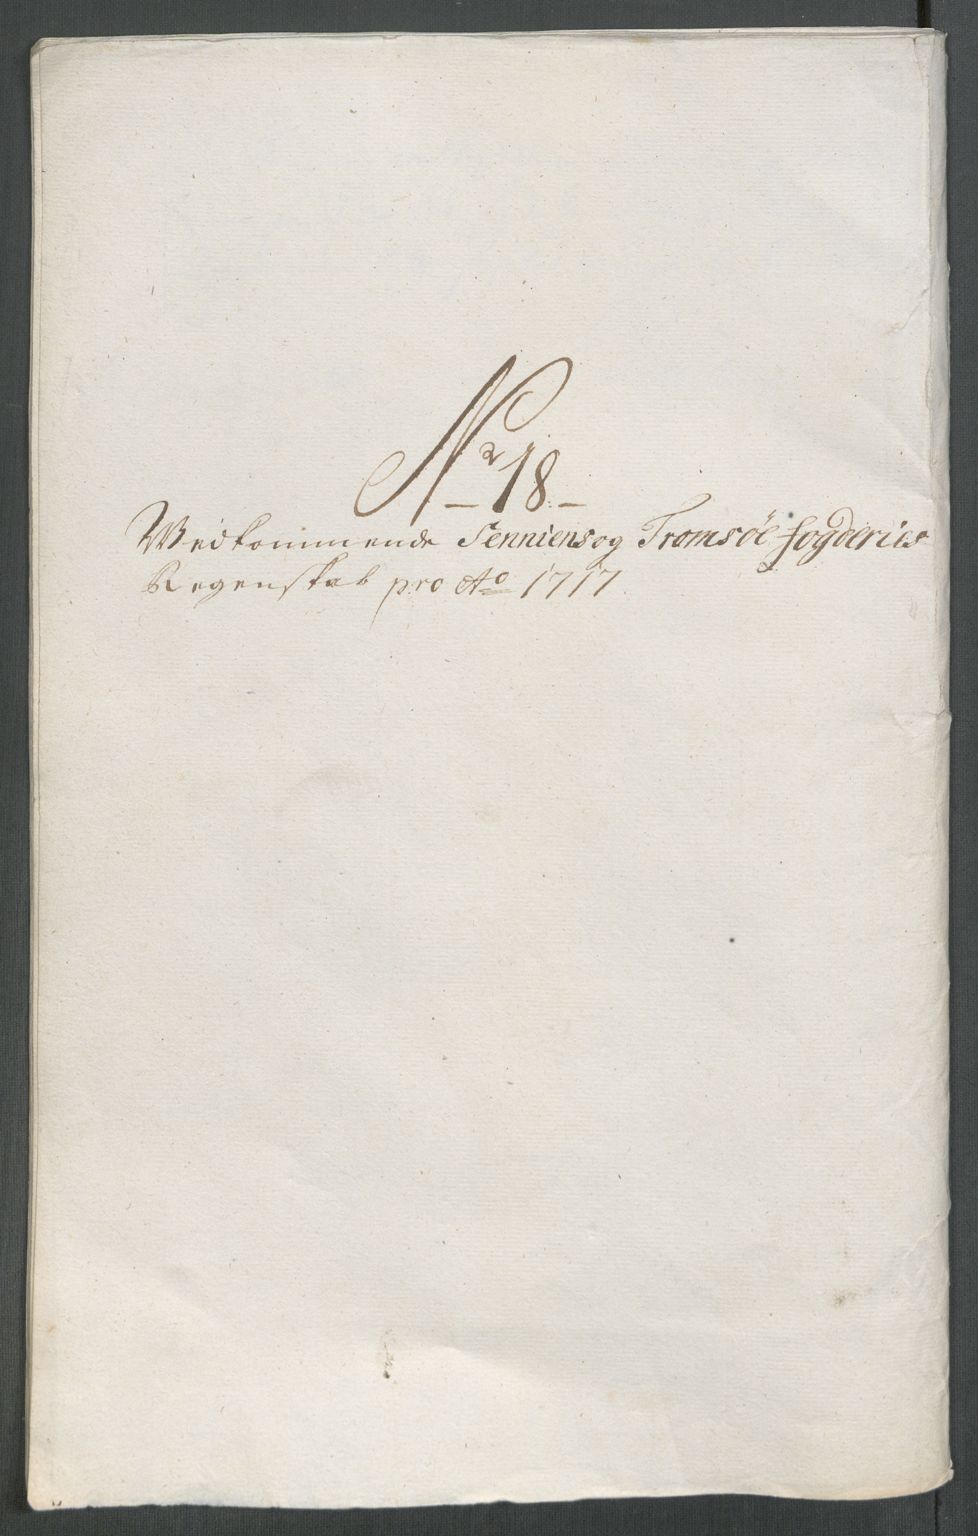 Nr 18
Vedkommende Senniens og Tromsöe fogderies
Regenskab pro Ao 1717